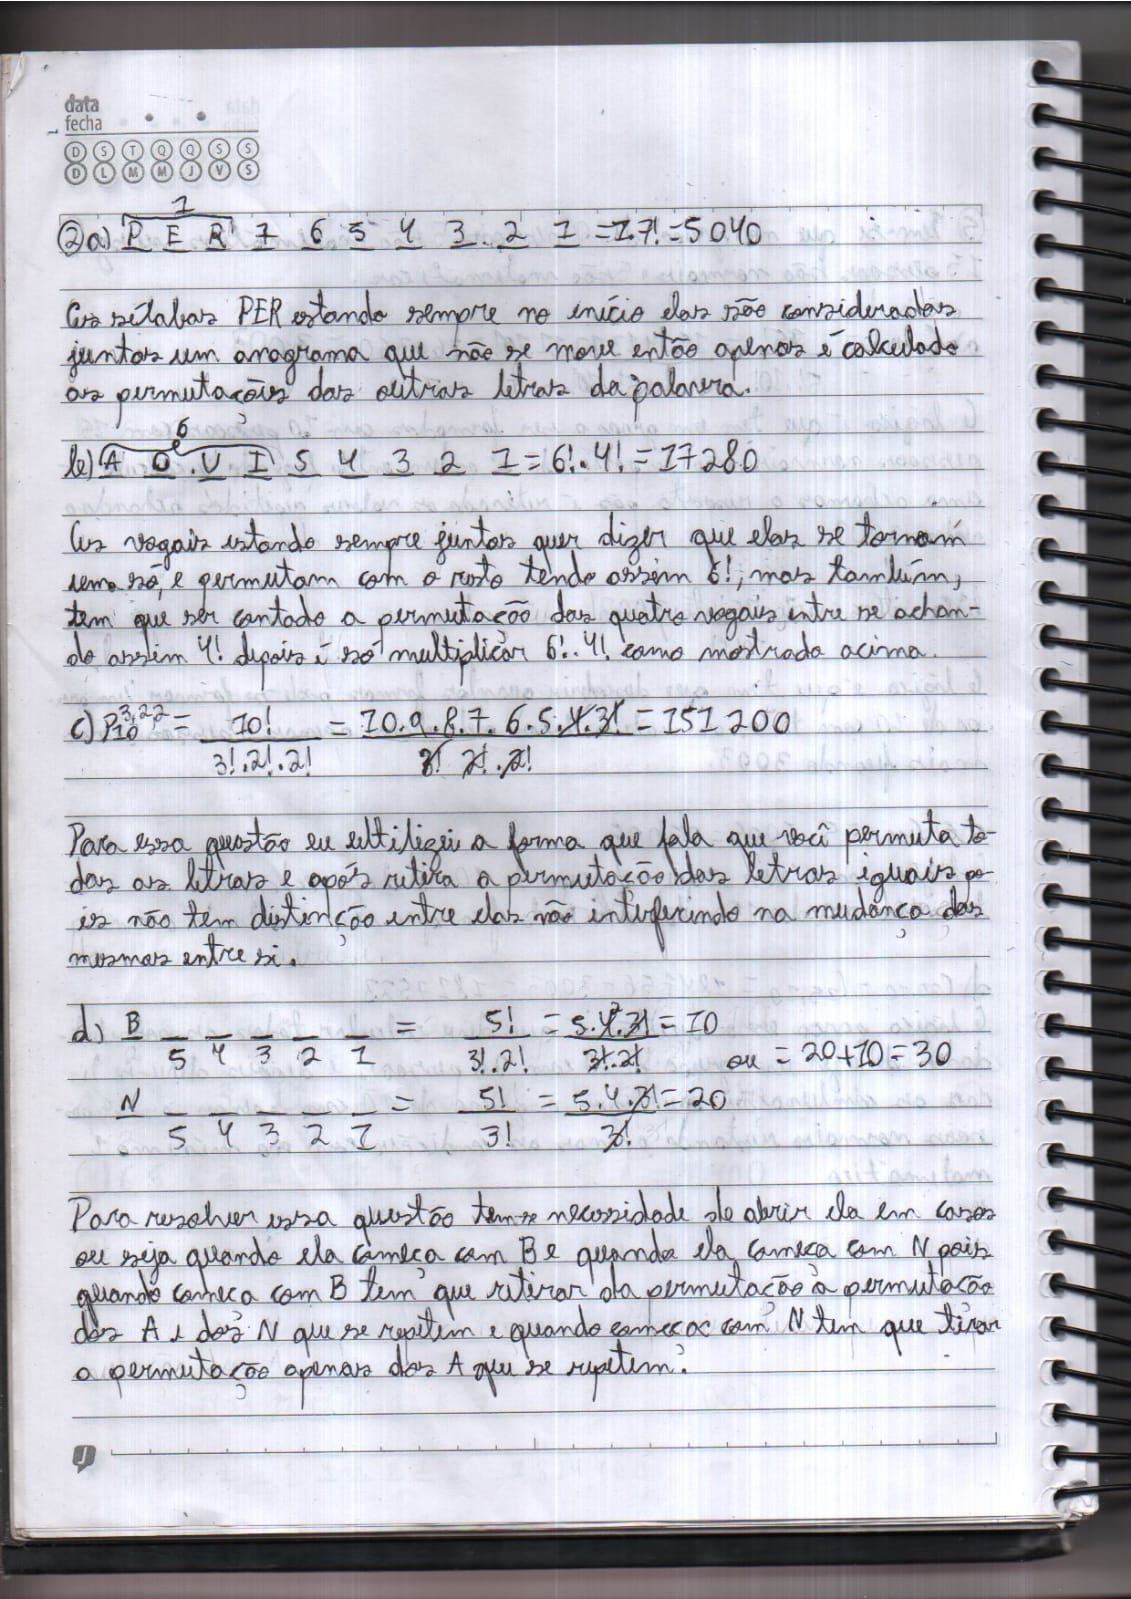 data
fecha
D S T Q Q S S
D L M M J V S
1
2a) P E R 7 6 5 4 3 2 1 = 1.7! = 5040
As sílabas PER estando sempre no início elas são consideradas
juntas um anagrama que não se move então apenas é calculado
as permutações das outras letras da palavra.
6
b) A O U I 5 4 3 2 1 = 6! . 4! = 17280
As vogais estando sempre juntas quer dizer que elas se tornam
uma só, e permutam com o resto tendo assim 6!, mas também,
tem que ser contado a permutação das quatro vogais entre se achan-
do assim 4! depois é só multiplicar 6! . 4! como mostrado acima.
c) P10^3,2,2 = 10! / 3!.2!.2! = 10.9.8.7.6.5.4.3! / 3! 2!.2! = 151200
Para essa questão eu ultilizei a forma que fala que você permuta to-
das as letras e após retira a permutação das letras iguais po-
is não tem distinção entre elas não interferindo na mudança das
mesmas entre si.
d) B _ _ _ _ _ = 5! / 3!.2! = 5.4.3! / 3!.2! = 10
5 4 3 2 1 ou = 20+10=30
N _ _ _ _ _ = 5! / 3! = 5.4.3! / 3! = 20
5 4 3 2 1
Para resolver essa questão tem-se necessidade de abrir ela em casos
ou seja quando ela começa com B e quando ela começa com N pois
quando começa com B tem que retirar da permutação a permutação
dos A e dos N que se repetem e quando começar com N tem que tirar
a permutação apenas dos A que se repetem.
J